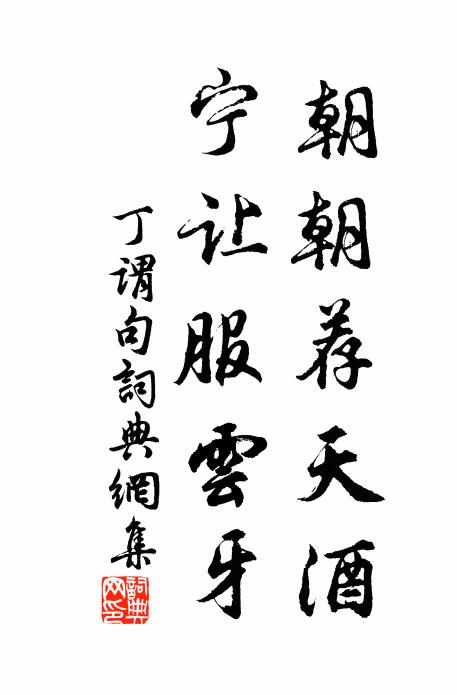 朝朝荐天酒
宁让服雲牙
丁谓句詞典網集
詞典網印